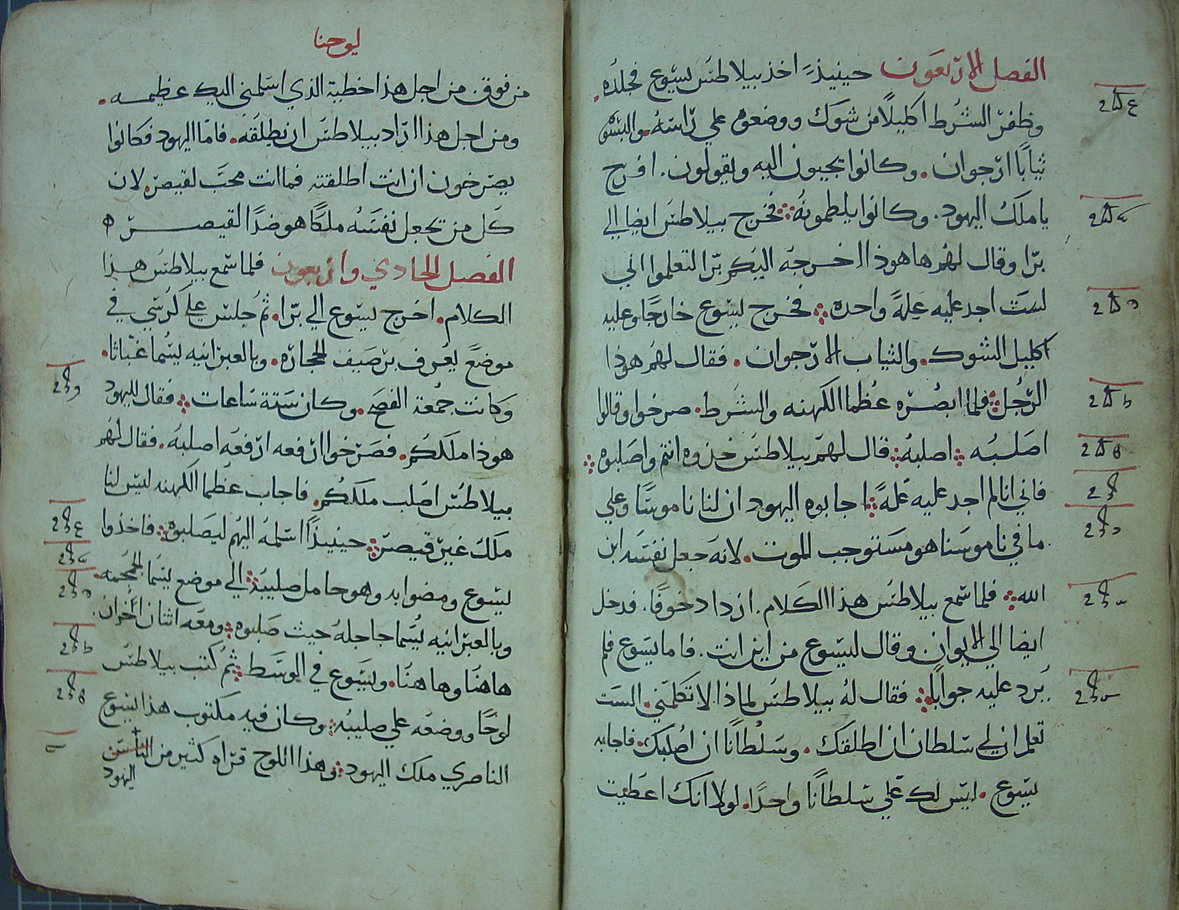 الفصل الاربعون حينيذٍ اخذ بيلاطس يسوع فجلده.
وظفر الشرط اكليلًا من شوك ووضعوه علي راسه. والبسوه
ثيابًا ارجوان. وكانوا يجيون اليه ويقولون. افرح
يا ملك اليهود. وكانوا يلطمونه فخرج بيلاطس ايضا الي
برا وقال لهم هاهوذا اخرجه اليكم برا لتعلموا اني
لست اجد عليه عله واحده. فخرج يسوع خارجًا وعليه
اكليل الشوك. والثياب الارجوان. فقال لهم هوذا
الرجل فلما ابصره عظما الكهنه والشرط. صرخوا وقالوا
اصلبه اصلبه قال لهم بيلاطس خذوه انتم واصلبوه
فاني انا لم اجد عليه عله اجابوه اليهود ان لنا ناموسًا وعلي
ما في ناموسنا هو مستوجب الموت. لانه جعل نفسه ابن
الله فلما سمع بيلاطس هذا الكلام. ازداد خوفًا. فدخل
ايضا الي الايوان وقال ليسوع من اين انت. فاما يسوع فلم
يرد عليه جوابًا فقال له بيلاطس لماذا لا تكلمني. الست
تعلم ان لي سلطان ان اطلقك. وسلطانًا ان اصلبك. فاجابه
يسوع. ليس لك علي سلطانًا واحدًا. لولا انك اعطيت
لوحنا
من فوق. من اجل هذا خطية الذي اسلمني اليك عظيمه.
ومن اجل هذا اراد بيلاطس ان يطلقه. فاما اليهود فكانوا
يصرخون ان انت اطلقته فما انت محب لقيصر. لان
كل من يجعل نفسه ملكًا هو ضدًا لقيصر ه
الفصل الحادي واربعون فلما سمع بيلاطس هذا
الكلام. اخرج يسوع الي برا. ثم جلس علي كرسي في
موضع يعرف برصيف الحجاره. وبالعبرانيه يسما غباثا.
وكانت جمعة الفصح. وكان ستة ساعات فقال لليهود
هوذا ملككم. فصرخوا ارفعه ارفعه اصلبه. فقال لهم
بيلاطس اصلب ملككم. فاجاب عظما الكهنه ليس لنا
ملك غير قيصر حينيذًا اسلمه اليهم ليصلبوه فاخذوا
يسوع ومضوا به وهو حامل صليبه الي موضع يسما الجمجمه.
وبالعبرانيه يسما جاجله حيث صلبوه ومعه اثنان اخران
هاهنا وهاهنا. ويسوع في الوسط ثم كتب بيلاطس
لوحًا ووضعه علي صليبه وكان فيه مكتوب هذا يسوع
الناصري ملك اليهود وهذا اللوح قراه كثير من الناس من
اليهود